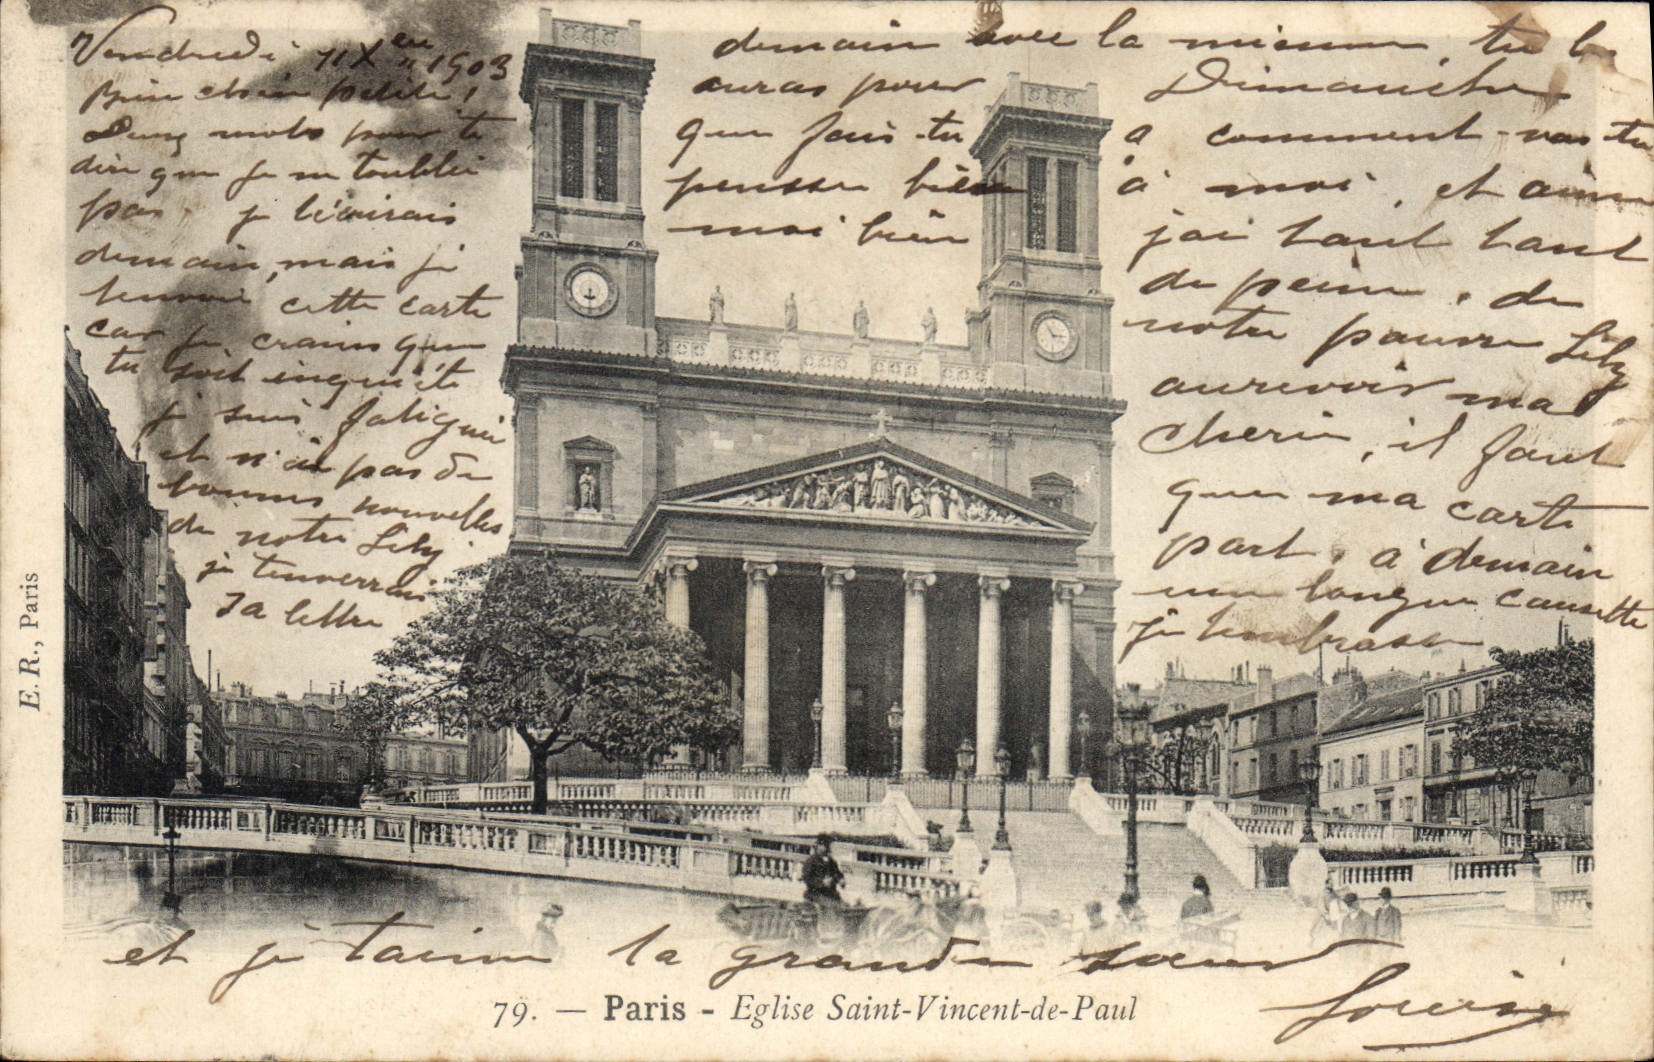 Vendredi 11 Xbre 1903
Bien chère petite!
Deux mots pour te
dire que je ne t'oublie
pas je t'écrirais
demain, mais je
t'envoie cette carte
car je crains que
tu soit inquiète
je suis fatiguée
et n'ai pas de
bonnes nouvelles
de notre Lily
je t'enverrais
sa lettre
demain avec la mienne, tu la
auras pour Dimanche
que fais-tu comment vas tu
pensse bien à moi, et aime
moi bien j'ai tant tant
de peine, de
notre pauvre Lily
aurevoir ma
cherie, il faut
que ma carte
part, à demain
une longue causette
je t'embrasse
et je t'aime la grande soeur
Louise
79. — Paris - Eglise Saint-Vincent-de-Paul
E. R., Paris